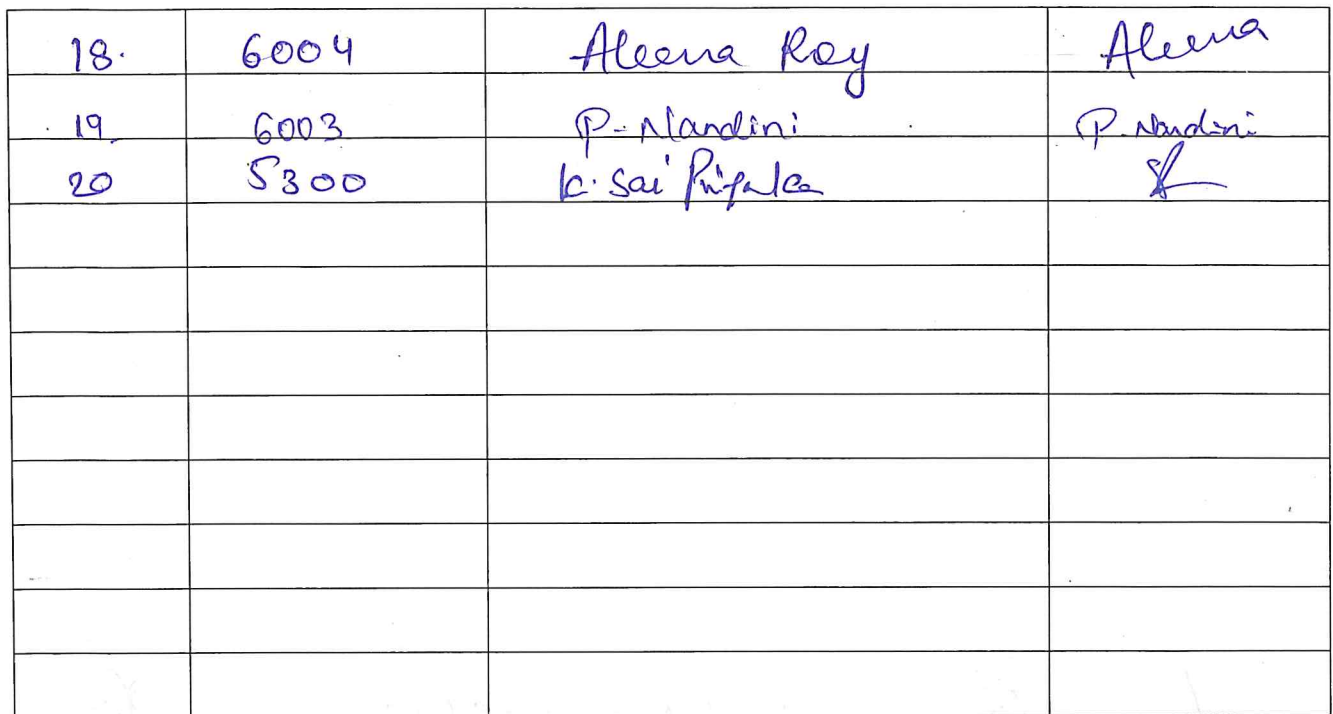 18. 6004 Aleena Roy Aleena
19 6003 P. Nandini P. Nandini
20 5300 K. Sai